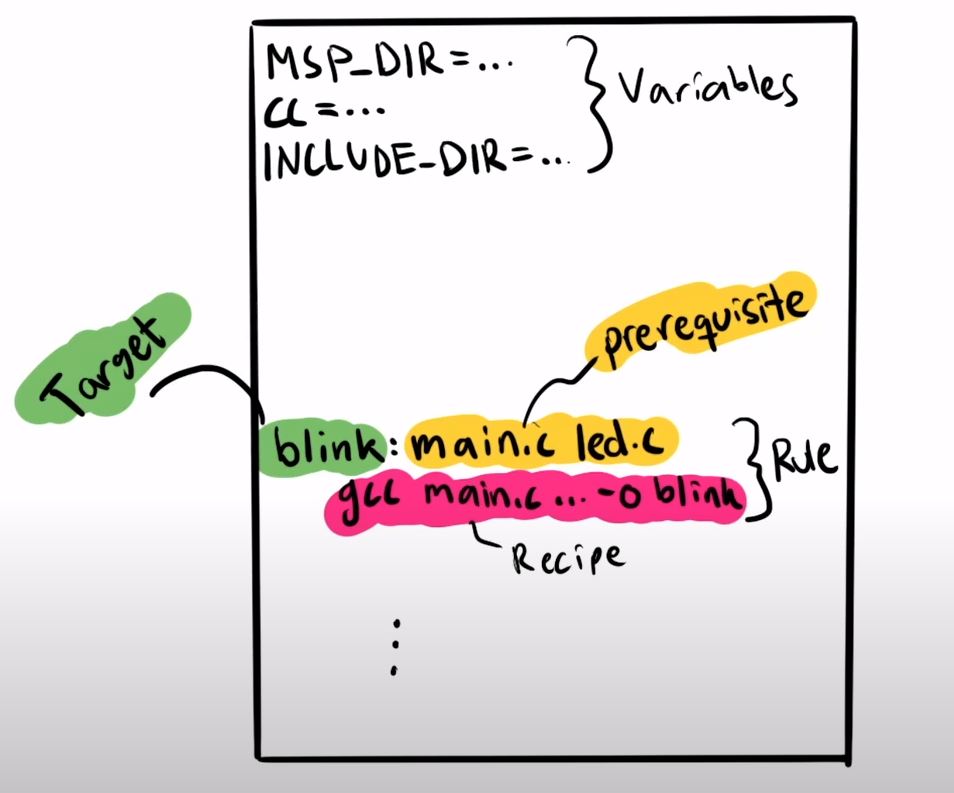 MSP_DIR=...
CC=...
INCLUDE_DIR=...
Variables
Target
prerequisite
blink: main.c led.c
gcc main.c ... -o blink
Rule
Recipe